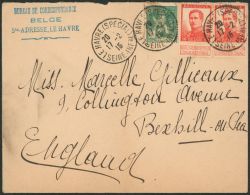 BUREAU DE CORRESPONDANCE
BELGE
Ste ADRESSE, LE HAVRE
LE HAVRE (SPECIAL)
(SEINE INFRE)
Miss. Marcelle Gillieaux
9, Collington Avenue
Bexhill-on-Sea
England